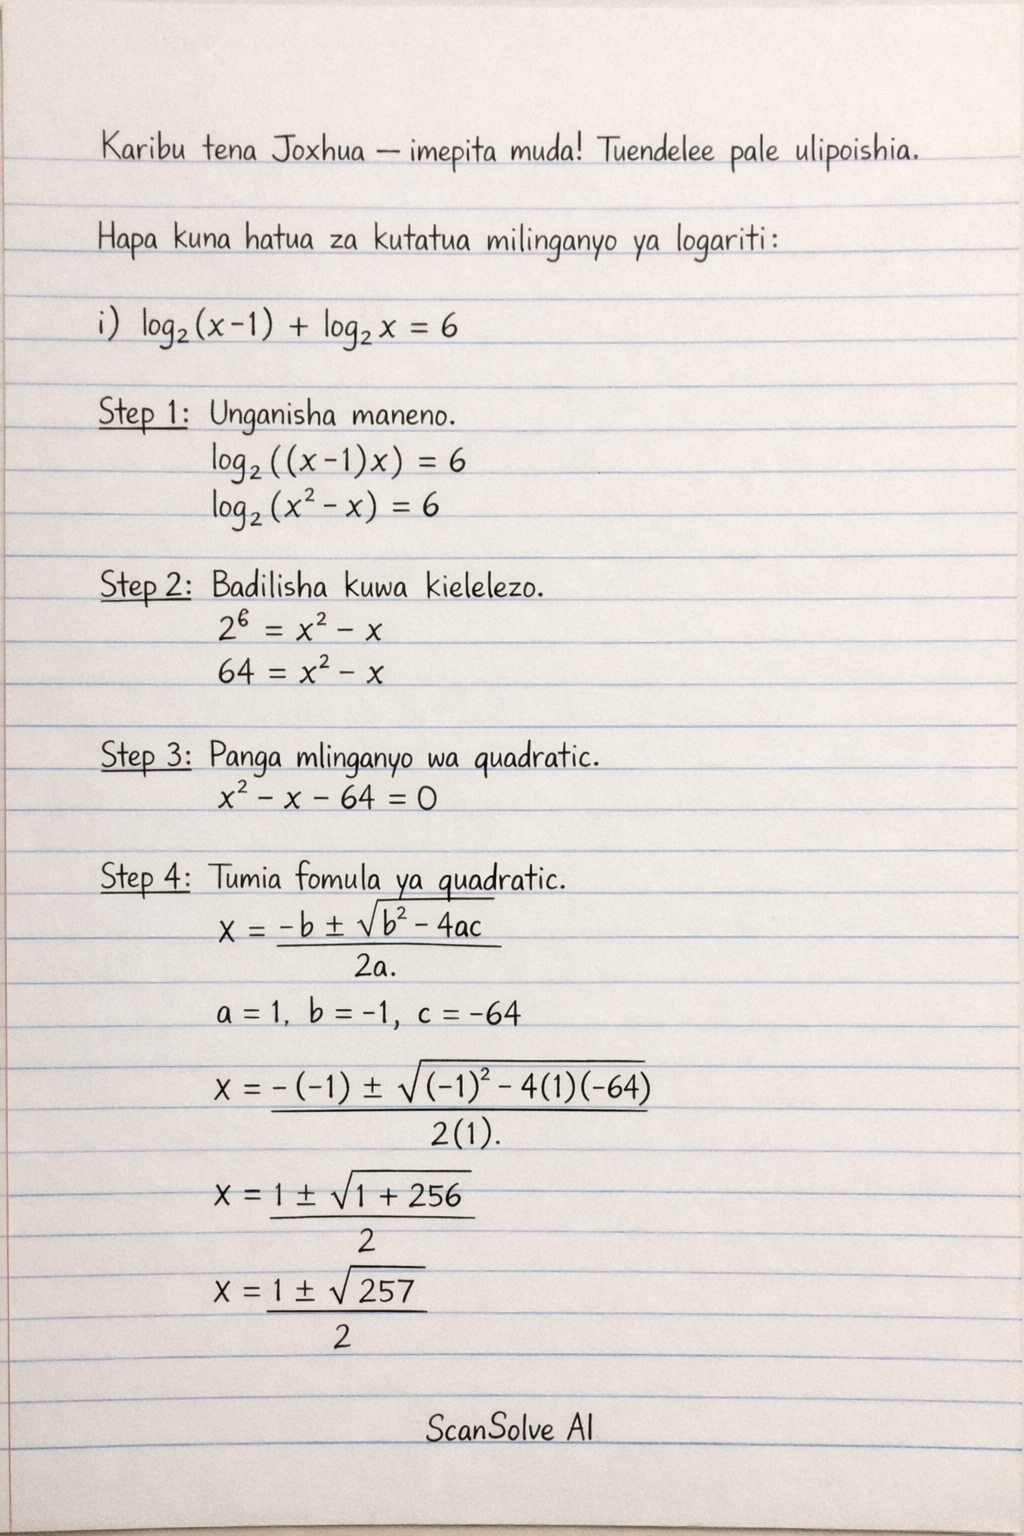 Karibu tena Joxhua — imepita muda! Tuendelee pale ulipoishia.
Hapa kuna hatua za kutatua milinganyo ya logariti:
i) log₂(x-1) + log₂ x = 6
Step 1: Unganisha maneno.
log₂((x-1)x) = 6
log₂(x² - x) = 6
Step 2: Badilisha kuwa kielelezo.
2⁶ = x² - x
64 = x² - x
Step 3: Panga mlinganyo wa quadratic.
x² - x - 64 = 0
Step 4: Tumia fomula ya quadratic.
x = -b ± √b² - 4ac
2a.
a = 1, b = -1, c = -64
x = -(-1) ± √(-1)² - 4(1)(-64)
2(1).
x = 1 ± √1 + 256
2
x = 1 ± √257
2
ScanSolve AI